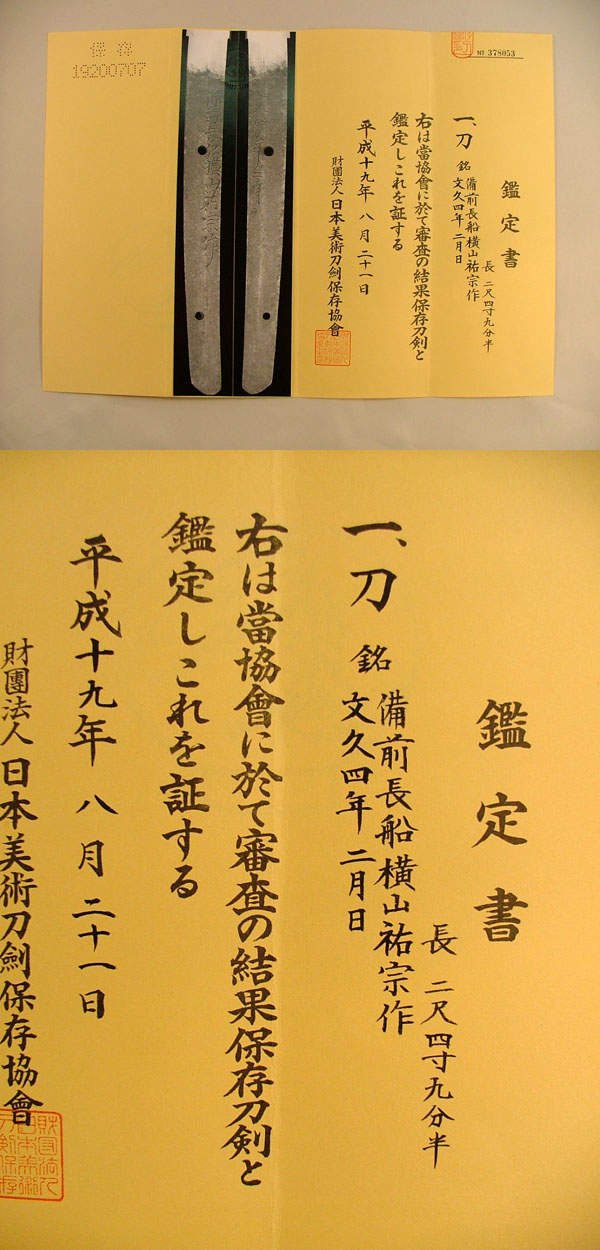 保存
19200707
№ 378053
鑑定書
長 二尺四寸九分半
一、刀 銘 備前長船横山祐宗作
文久四年二月日
右は當協會に於て審査の結果保存刀剣と
鑑定しこれを証する
平成十九年 八月 二十一日
財團法人日本美術刀劍保存協會
鑑定書
長 二尺四寸九分半
一、刀 銘 備前長船横山祐宗作
文久四年二月日
右は當協會に於て審査の結果保存刀剣と
鑑定しこれを証する
平成十九年 八月 二十一日
財團法人日本美術刀劍保存協會